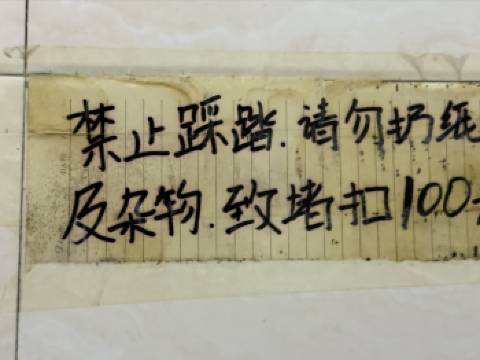 禁止踩踏.请勿扔纸
及杂物.致堵扣100